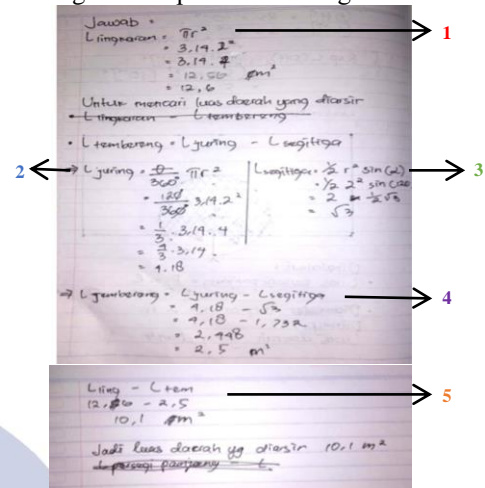 Jawab :
L lingkaran = πr² 1
= 3,14 . 2²
= 3,14 . 4
= 12,56 m²
= 12,6
Untuk mencari luas daerah yang diarsir
• L lingkaran - L tembereng
• L tembereng = L juring - L segitiga
2 → L juring = θ/360° πr²
= 120/360° 3,14 . 2²
= 1/3 . 3,14 . 4
= 4/3 . 3,14
= 4.18
L segitiga = ½ r² sin (α) 3
= ½ 2² sin (120
= 2 ½√3
= √3
→ L tembereng = L juring - L segitiga 4
= 4,18 - √3
= 4,18 - 1,732
= 2,448
= 2,5 m²
L ling - L tem 5
12,6 - 2,5
10,1 m²
Jadi luas daerah yg diarsir 10,1 m²
L persegi panjang - L